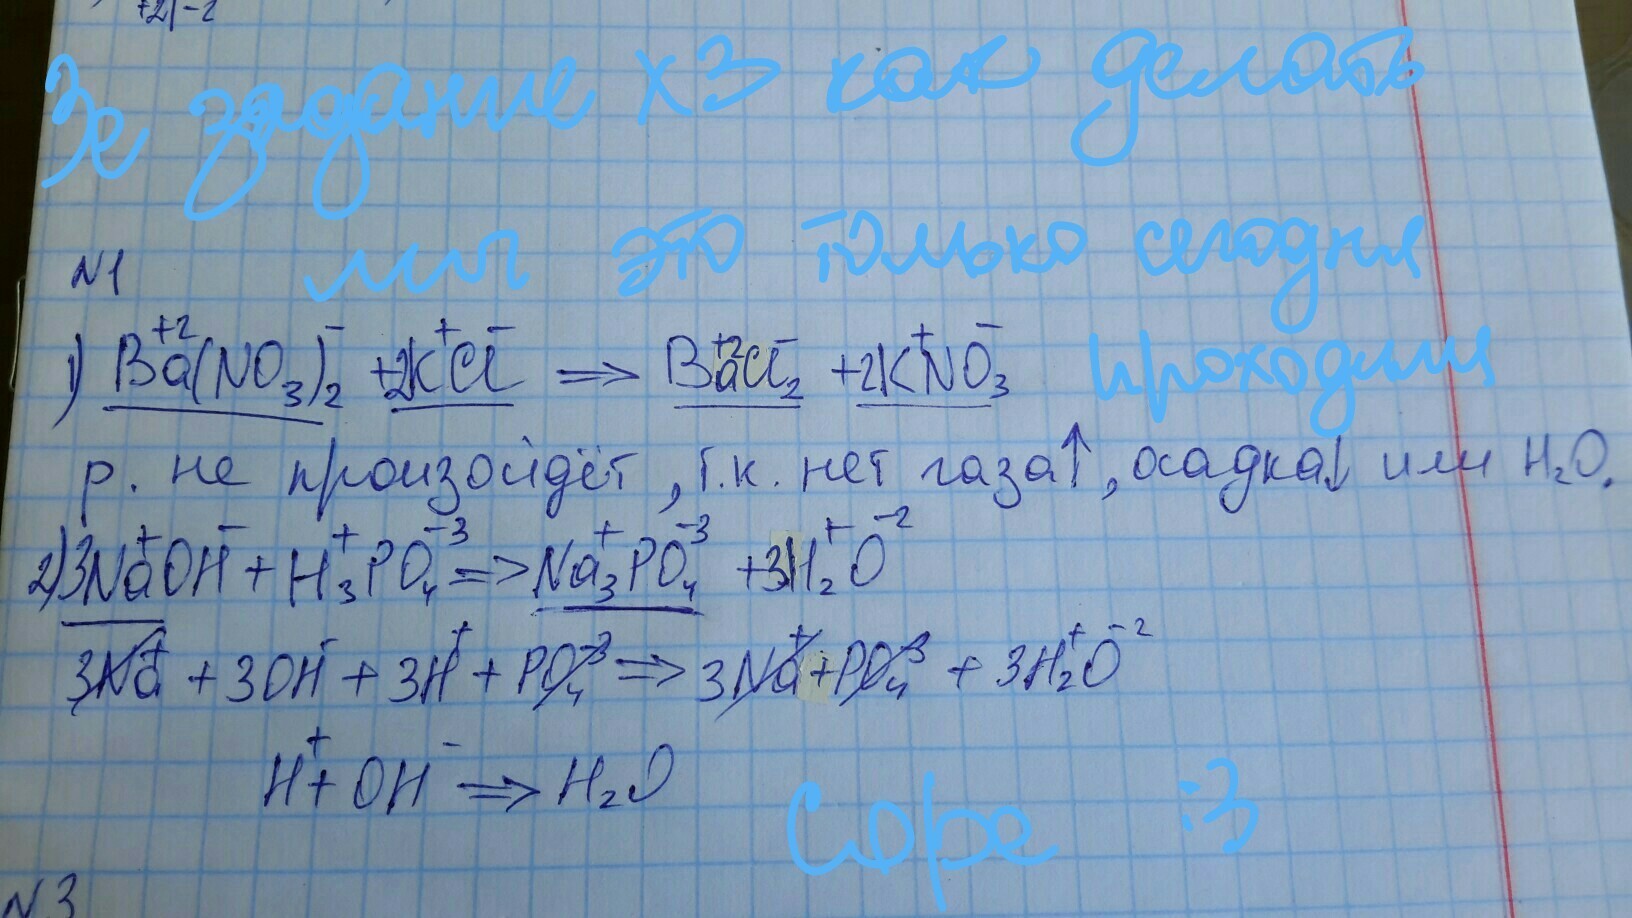 +2|-2
3е задание хз как делать
мы это только сегодня
проходим
N1
1) Ba⁺²(NO₃)₂⁻ + 2K⁺Cl⁻ => Ba⁺²Cl₂⁻ + 2K⁺NO₃⁻
р. не произойдёт, т.к. нет газа↑, осадка↓ или H₂O.
2) 3Na⁺OH⁻ + H₃⁺PO₄⁻³ => Na₃⁺PO₄⁻³ + 3H₂⁺O⁻²
3Na⁺ + 3OH⁻ + 3H⁺ + PO₄⁻³ => 3Na⁺ + PO₄⁻³ + 3H₂⁺O⁻²
H⁺ + OH⁻ => H₂O
Соре :3
N3